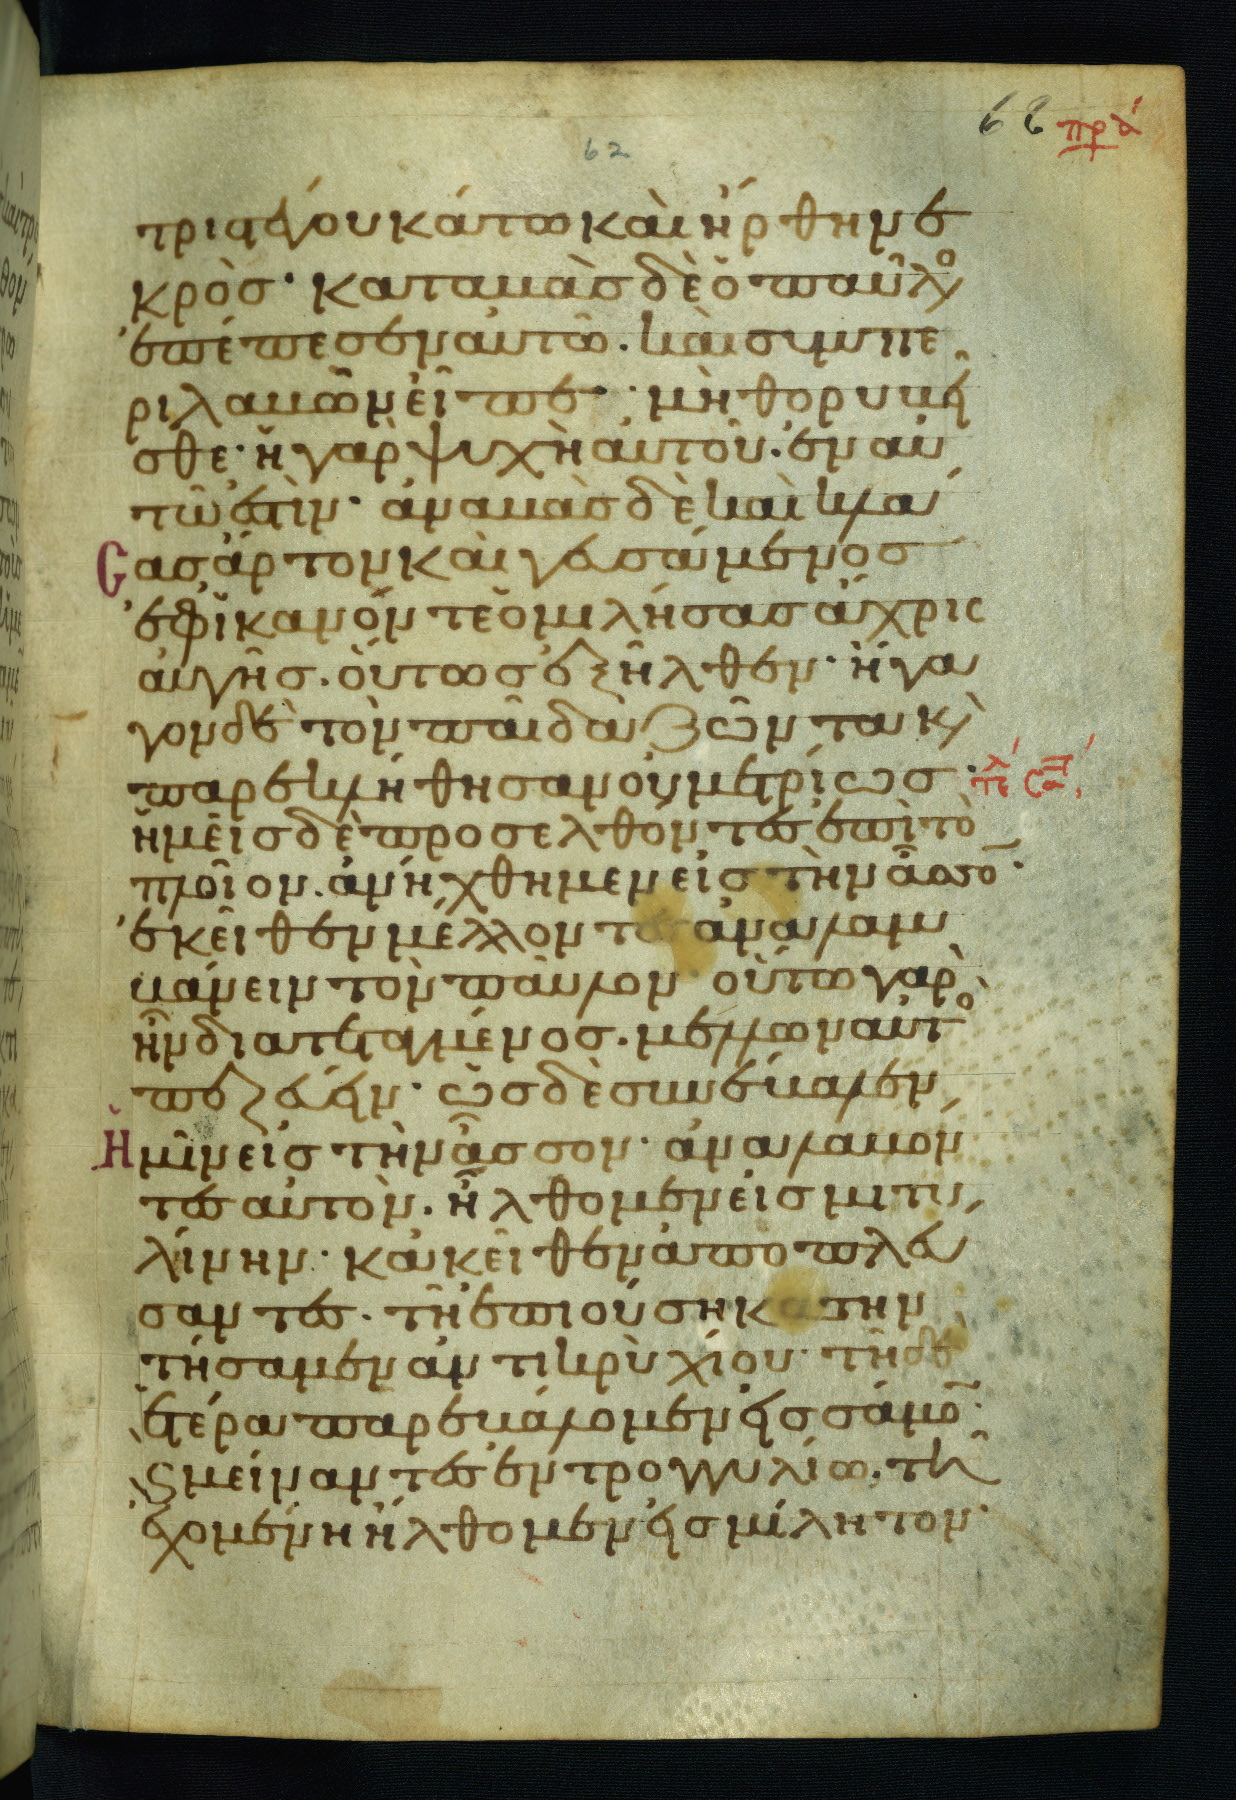 62 πρά
62
τριστέγου κάτω καὶ ἤρθη νε
κρὸσ· καταβὰσ δὲ ὁ παῦλο
ἐπέπεσεν αὐτῶ. καὶ συμπε
ριλαβῶν εἶπεν· μὴ θορυβεῖ
σθε· ἡ γὰρ ψυχὴ αὐτοῦ. ἐν αὐ
τῶ ἐστὶν· ἀναβὰσ δὲ καὶ κλά
σασ ἄρτον καὶ γευσάμενοσ
ἐφ ἱκανόν τε ὁμιλήσασ ἄχρισ
αὐγῆσ. οὕτωσ ἐξῆλθεν· ἤγα
γον δὲ τὸν παῖδα ζῶντα κὶ
παρεκλήθησαν οὐ μετρίωσ·
ἡμεῖσ δὲ προσελθόντεσ ἐπὶ τὸ
πλοῖον. ἀνήχθημεν εἰσ τὴν ἄσσο·
ἐκεῖθεν μέλλοντεσ ἀναλαμ
βάνειν τὸν παῦλον οὕτω γὰρ
ἦν διατεταγμένοσ. μέλλων αὐτὸ
πεζεύειν· ὡσ δὲ συνέβαλεν
ἡμῖν εἰσ τὴν ἄσσον· ἀναλαβόν
τεσ αὐτὸν. ἤλθομεν εἰσ μιτυ
λίνην· κἀκεῖθεν ἀποπλεύ
σαντεσ. τῆ ἐπιούση κατην
τήσαμεν ἀντικρὺ χίου· τῆ δὲ
ἑτέρα παρεβάλομεν εἰσ σάμο·
ϛ μείναντεσ ἐν τρογγυλίω. τῆ
ἐχομένη ἤλθομεν εἰσ μίλητον·